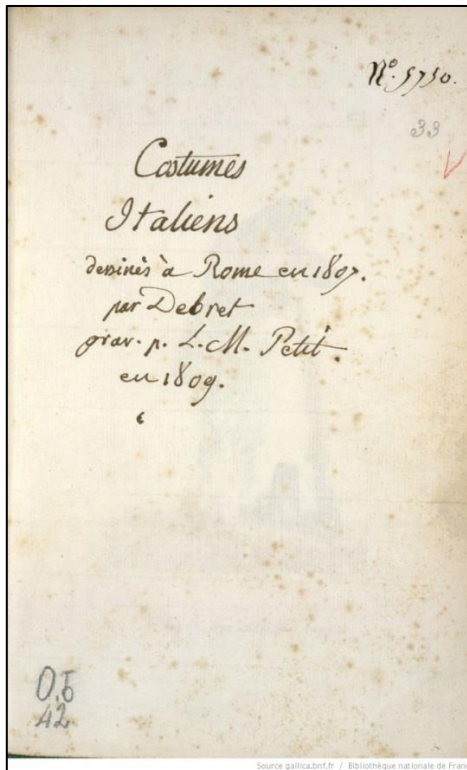 Nº. 5750.
33
Costumes
Italiens
dessinés à Rome en 1807.
par Debret
grav. p. L. M. Petit.
en 1809.
O.b
42
Source gallica.bnf.fr / Bibliothèque nationale de Franc